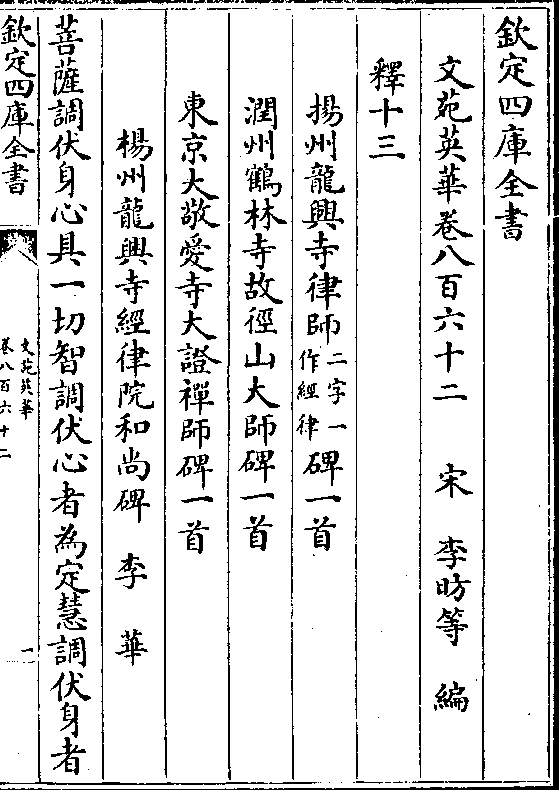 欽定四庫全書
文苑英華卷八百六十二　宋　李昉等　編
釋十三
揚州龍興寺律師二字一作經律碑一首
潤州鶴林寺故徑山大師碑一首
東京大敬愛寺大證禪師碑一首
楊州龍興寺經律院和尚碑　李　華
菩薩調伏身心具一切智調伏心者為定慧調伏身者
欽定四庫全書
文苑英華
卷八百六十二
一